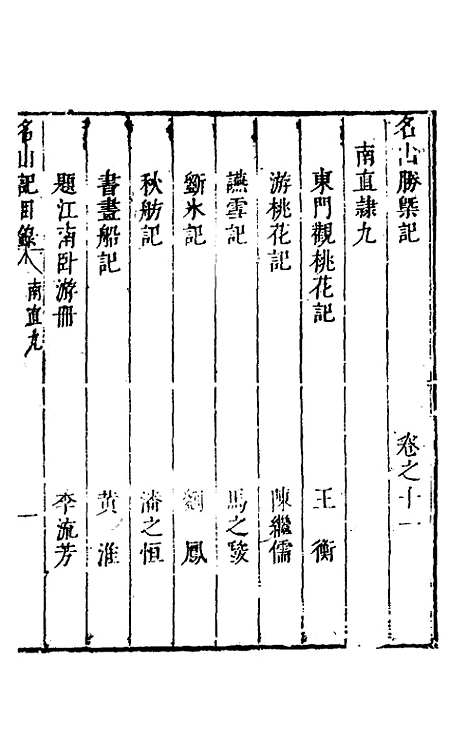 名山勝槩記　卷之十一
南直隷九
東門觀桃花記　王衡
游桃花記　陳繼儒
讌雪記　馬之駿
斲氷記　劉鳳
秋舫記　潘之恒
書畫船記　黃淮
題江南卧游冊　李流芳
名山記目錄　南直九　一